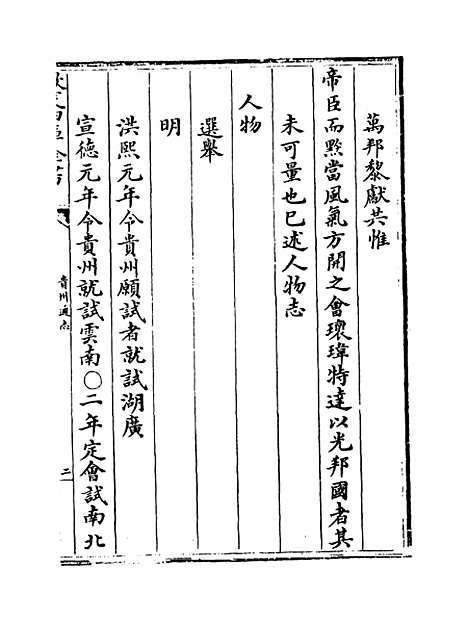 萬邦黎獻共惟
帝臣而黔當風氣方開之會瓌瑋特達以光邦國者其
未可量也已述人物志
人物
選舉
明
洪熙元年令貴州願試者就試湖廣
宣德元年令貴州就試雲南○二年定會試南北
欽定四庫全書
貴州通志
二